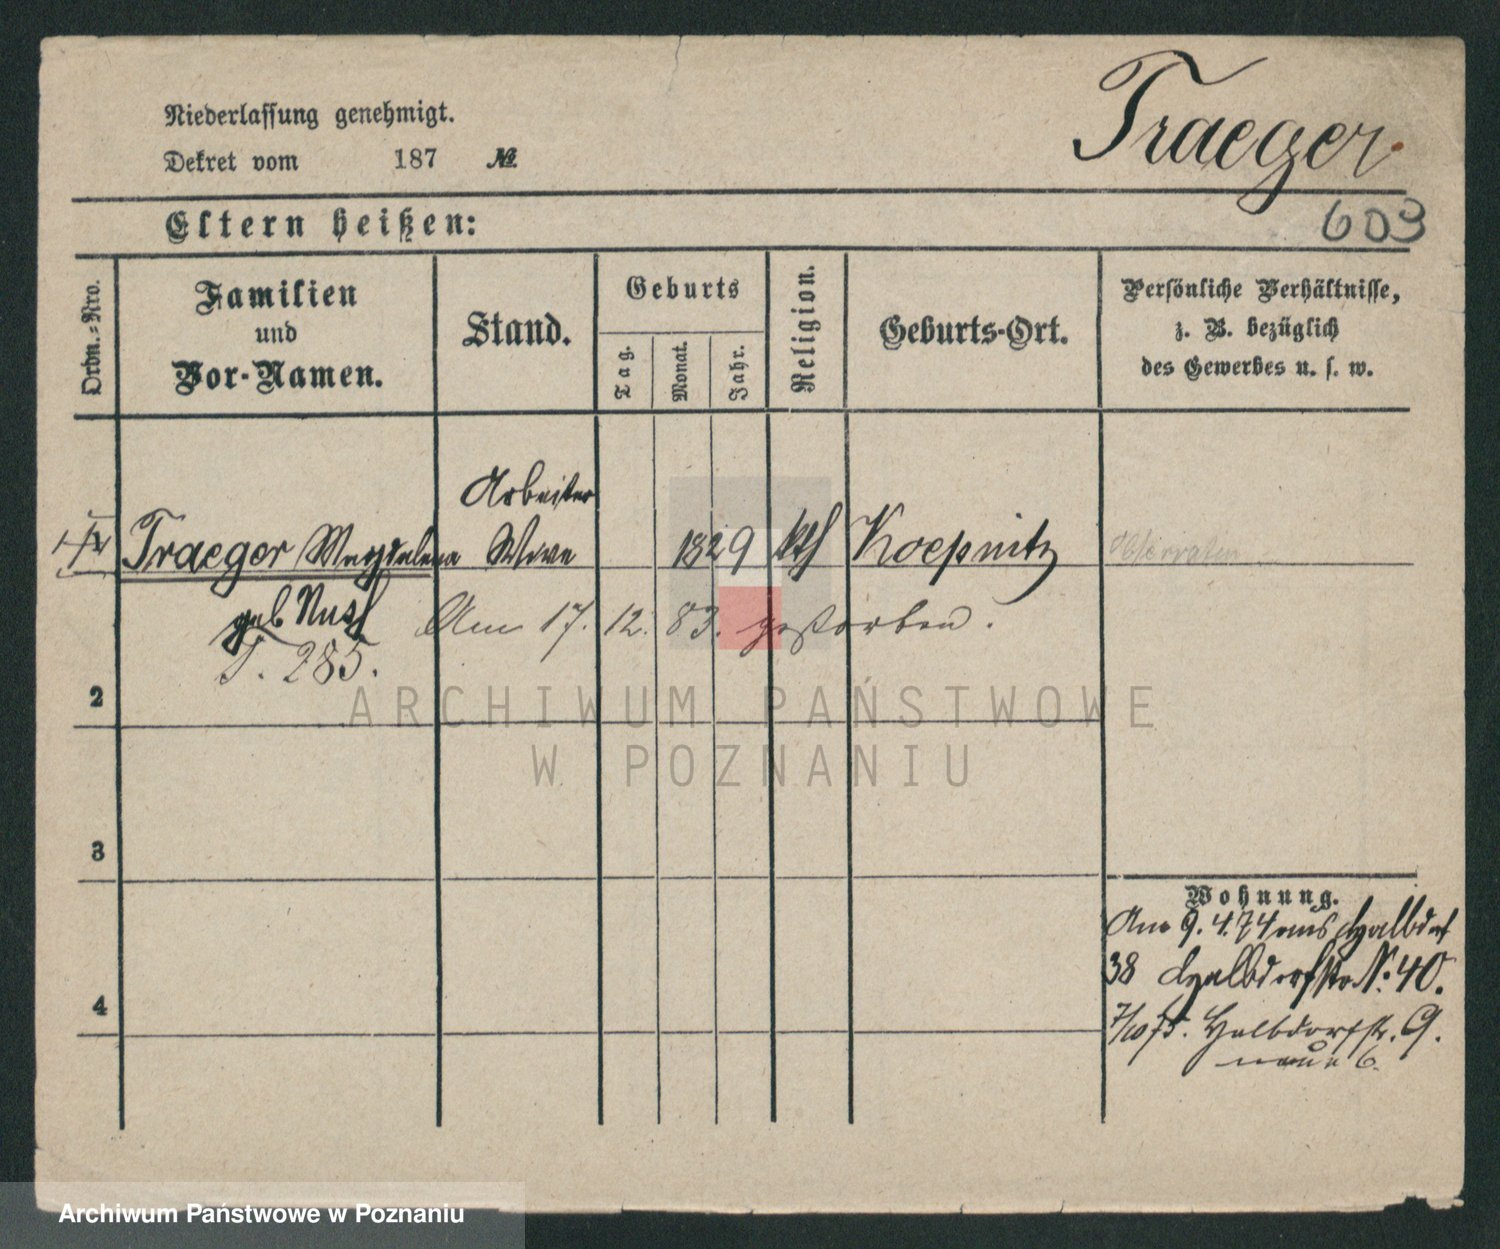 Niederlassung genehmigt.
Dekret vom 187 №
Traeger
603
Eltern heißen:
Ordn.-Nro.
Familien
und
Vor-Namen.
Stand.
Geburts
Tag.
Monat.
Jahr.
Religion.
Geburts-Ort.
Persönliche Verhältnisse,
z. B. bezüglich
des Gewerbes u. s. w.
Arbeiter
1 Traeger Magdalena Wwe 1829 kth Koepnitz
geb Am 17. 12. 83. gestorben.
T. 285.
2
ARCHIWUM PAŃSTWOWE
W POZNANIU
3
Wohnung.
Am 9. 4. 74 aus Halbdorf
38 Halbdorfstr N: 40.
4
7/10 75. Halbdorfstr. 9.
neue 6.
Archiwum Państwowe w Poznaniu